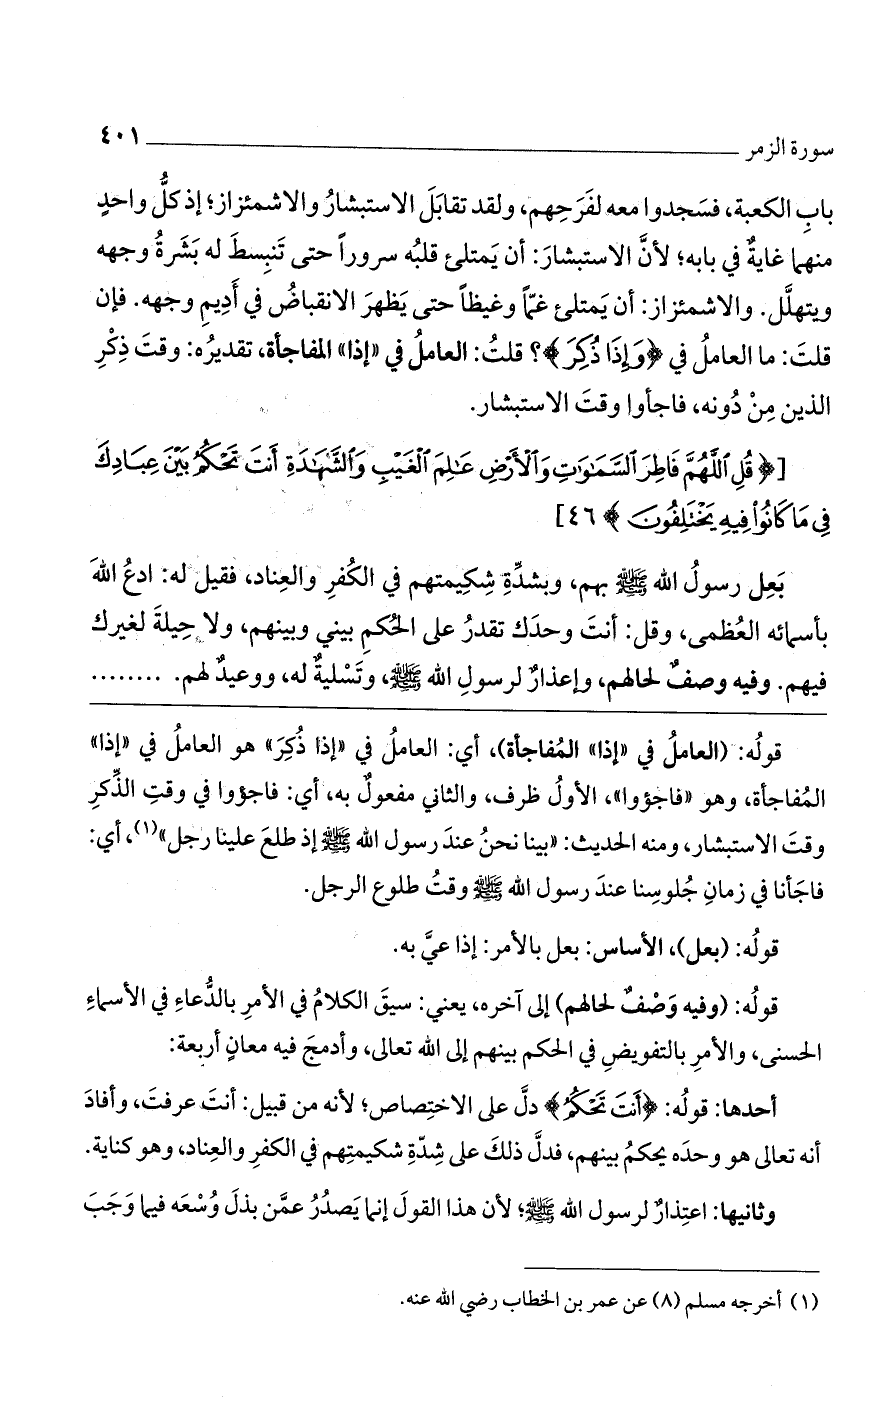 سورة الزمر ٤٠١
بابِ الكعبة، فسَجدوا معه لفَرَحِهم، ولقد تقابَلَ الاستبشارُ والاشمئزاز؛ إذ كلُّ واحدٍ
منهما غايةٌ في بابه؛ لأنَّ الاستبشارَ: أن يَمتلئ قلبُه سروراً حتى تَنبِسطَ له بَشَرةُ وجهه
ويتهلَّل. والاشمئزاز: أن يَمتلئ غمّاً وغيظاً حتى يَظهرَ الانقباضُ في أَديمِ وجهه. فإن
قلتَ: ما العاملُ في ﴿وَإِذَا ذُكِرَ﴾؟ قلتُ: العاملُ في «إذا» المفاجأة، تقديرُه: وقتَ ذِكْرِ
الذين مِنْ دُونه، فاجأوا وقتَ الاستبشار.
[﴿قُلِ ٱللَّهُمَّ فَاطِرَ ٱلسَّمَٰوَٰتِ وَٱلْأَرْضِ عَٰلِمَ ٱلْغَيْبِ وَٱلشَّهَٰدَةِ أَنتَ تَحْكُمُ بَيْنَ عِبَادِكَ
فِي مَا كَانُوا۟ فِيهِ يَخْتَلِفُونَ﴾ ٤٦]
بَعِل رسولُ الله ﷺ بهم، وبشدَّةِ شِكيمتهم في الكُفرِ والعِناد، فقيل له: ادعُ اللهَ
بأسمائه العُظمى، وقل: أنتَ وحدَك تقدرُ على الحُكمِ بيني وبينهم، ولا حِيلةَ لغيرك
فيهم. وفيه وصفٌ لحالهم، وإعذارٌ لرسولِ الله ﷺ، وتَسْليةٌ له، ووعيدٌ لهم. ........
قولُه: (العاملُ في «إذا» المُفاجأة)، أي: العاملُ في «إذا ذُكِرَ» هو العاملُ في «إذا»
المُفاجأة، وهو «فاجؤوا»، الأولُ ظرف، والثاني مفعولٌ به، أي: فاجؤوا في وقتِ الذِّكرِ
وقتَ الاستبشار، ومنه الحديث: «بينا نحنُ عندَ رسول الله ﷺ إذ طلعَ علينا رجل»(١)، أي:
فاجَأنا في زمانِ جُلوسِنا عندَ رسول الله ﷺ وقتُ طلوعِ الرجل.
قولُه: (بعل)، الأساس: بعل بالأمر: إذا عيَّ به.
قولُه: (وفيه وَصْفٌ لحالهم) إلى آخره، يعني: سيقَ الكلامُ في الأمرِ بالدُّعاءِ في الأسماءِ
الحسنى، والأمرِ بالتفويضِ في الحكم بينهم إلى الله تعالى، وأدمجَ فيه معانٍ أربعة:
أحدها: قولُه: ﴿أَنتَ تَحْكُمُ﴾ دلَّ على الاختِصاص؛ لأنه من قبيل: أنتَ عرفتَ، وأفادَ
أنه تعالى هو وحدَه يحكمُ بينهم، فدلَّ ذلكَ على شِدّةِ شكيمتِهم في الكفرِ والعِناد، وهو كناية.
وثانيها: اعتِذارٌ لرسول الله ﷺ؛ لأن هذا القولَ إنما يَصدُرُ عمَّن بذلَ وُسْعَه فيما وَجَبَ
(١) أخرجه مسلم (٨) عن عمر بن الخطاب رضي الله عنه.